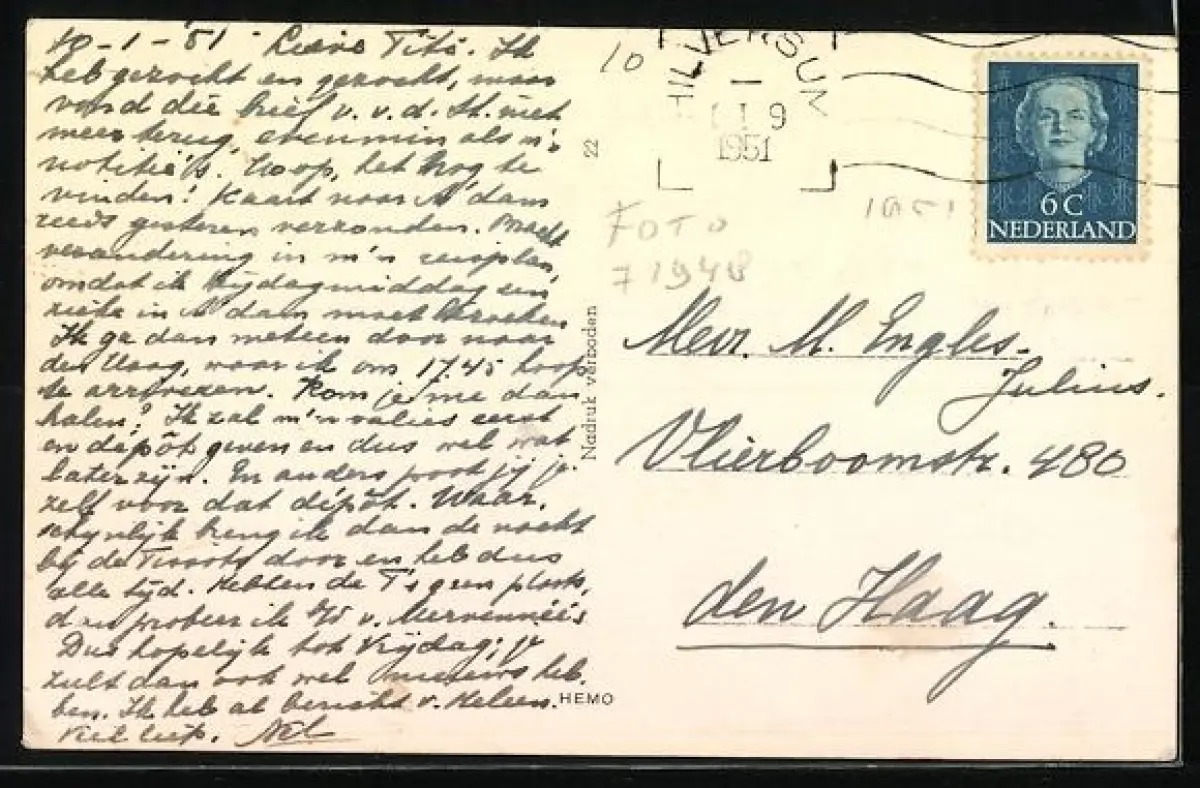 10-1-51 Lieve Tits. Ik
heb gezocht en gezocht, maar
vond die brief v. v. d. St. niet
meer terug, evenmin als m'n
notitie's. Hoop, het nog te
vinden! Kaart naar A'dam
reeds gisteren verzonden. Bracht
verandering in m'n reisplan,
omdat ik Vrijdagmiddag een
zieke in A'dam moet bezoeken
Ik ga dan meteen door naar
den Haag, waar ik om 17.45 hoop
te arriveren. Kom je me dan
halen? Ik zal m'n valies eerst
en dépôt geven en dus wel wat
later zijn. En anders post jij je
zelf voor dat dépôt. Waar-
schynlijk breng ik dan de nacht
bij de door en heb dus
alle tijd. Hebben de T's geen plaats,
dan probeer ik v.
Dus hopelijk tot Vrijdag; je
zult dan ook wel nieuws heb-
ben. Ik heb al bericht v. Heleen.
Veel liefs. Nel
22
Nadruk verboden
HEMO
10
HILVERSUM
1951
6 C
NEDERLAND
1951
FOTO
7 1948
Mevr. M. Engles-
Julius.
Vlierboomstr. 480
den Haag.